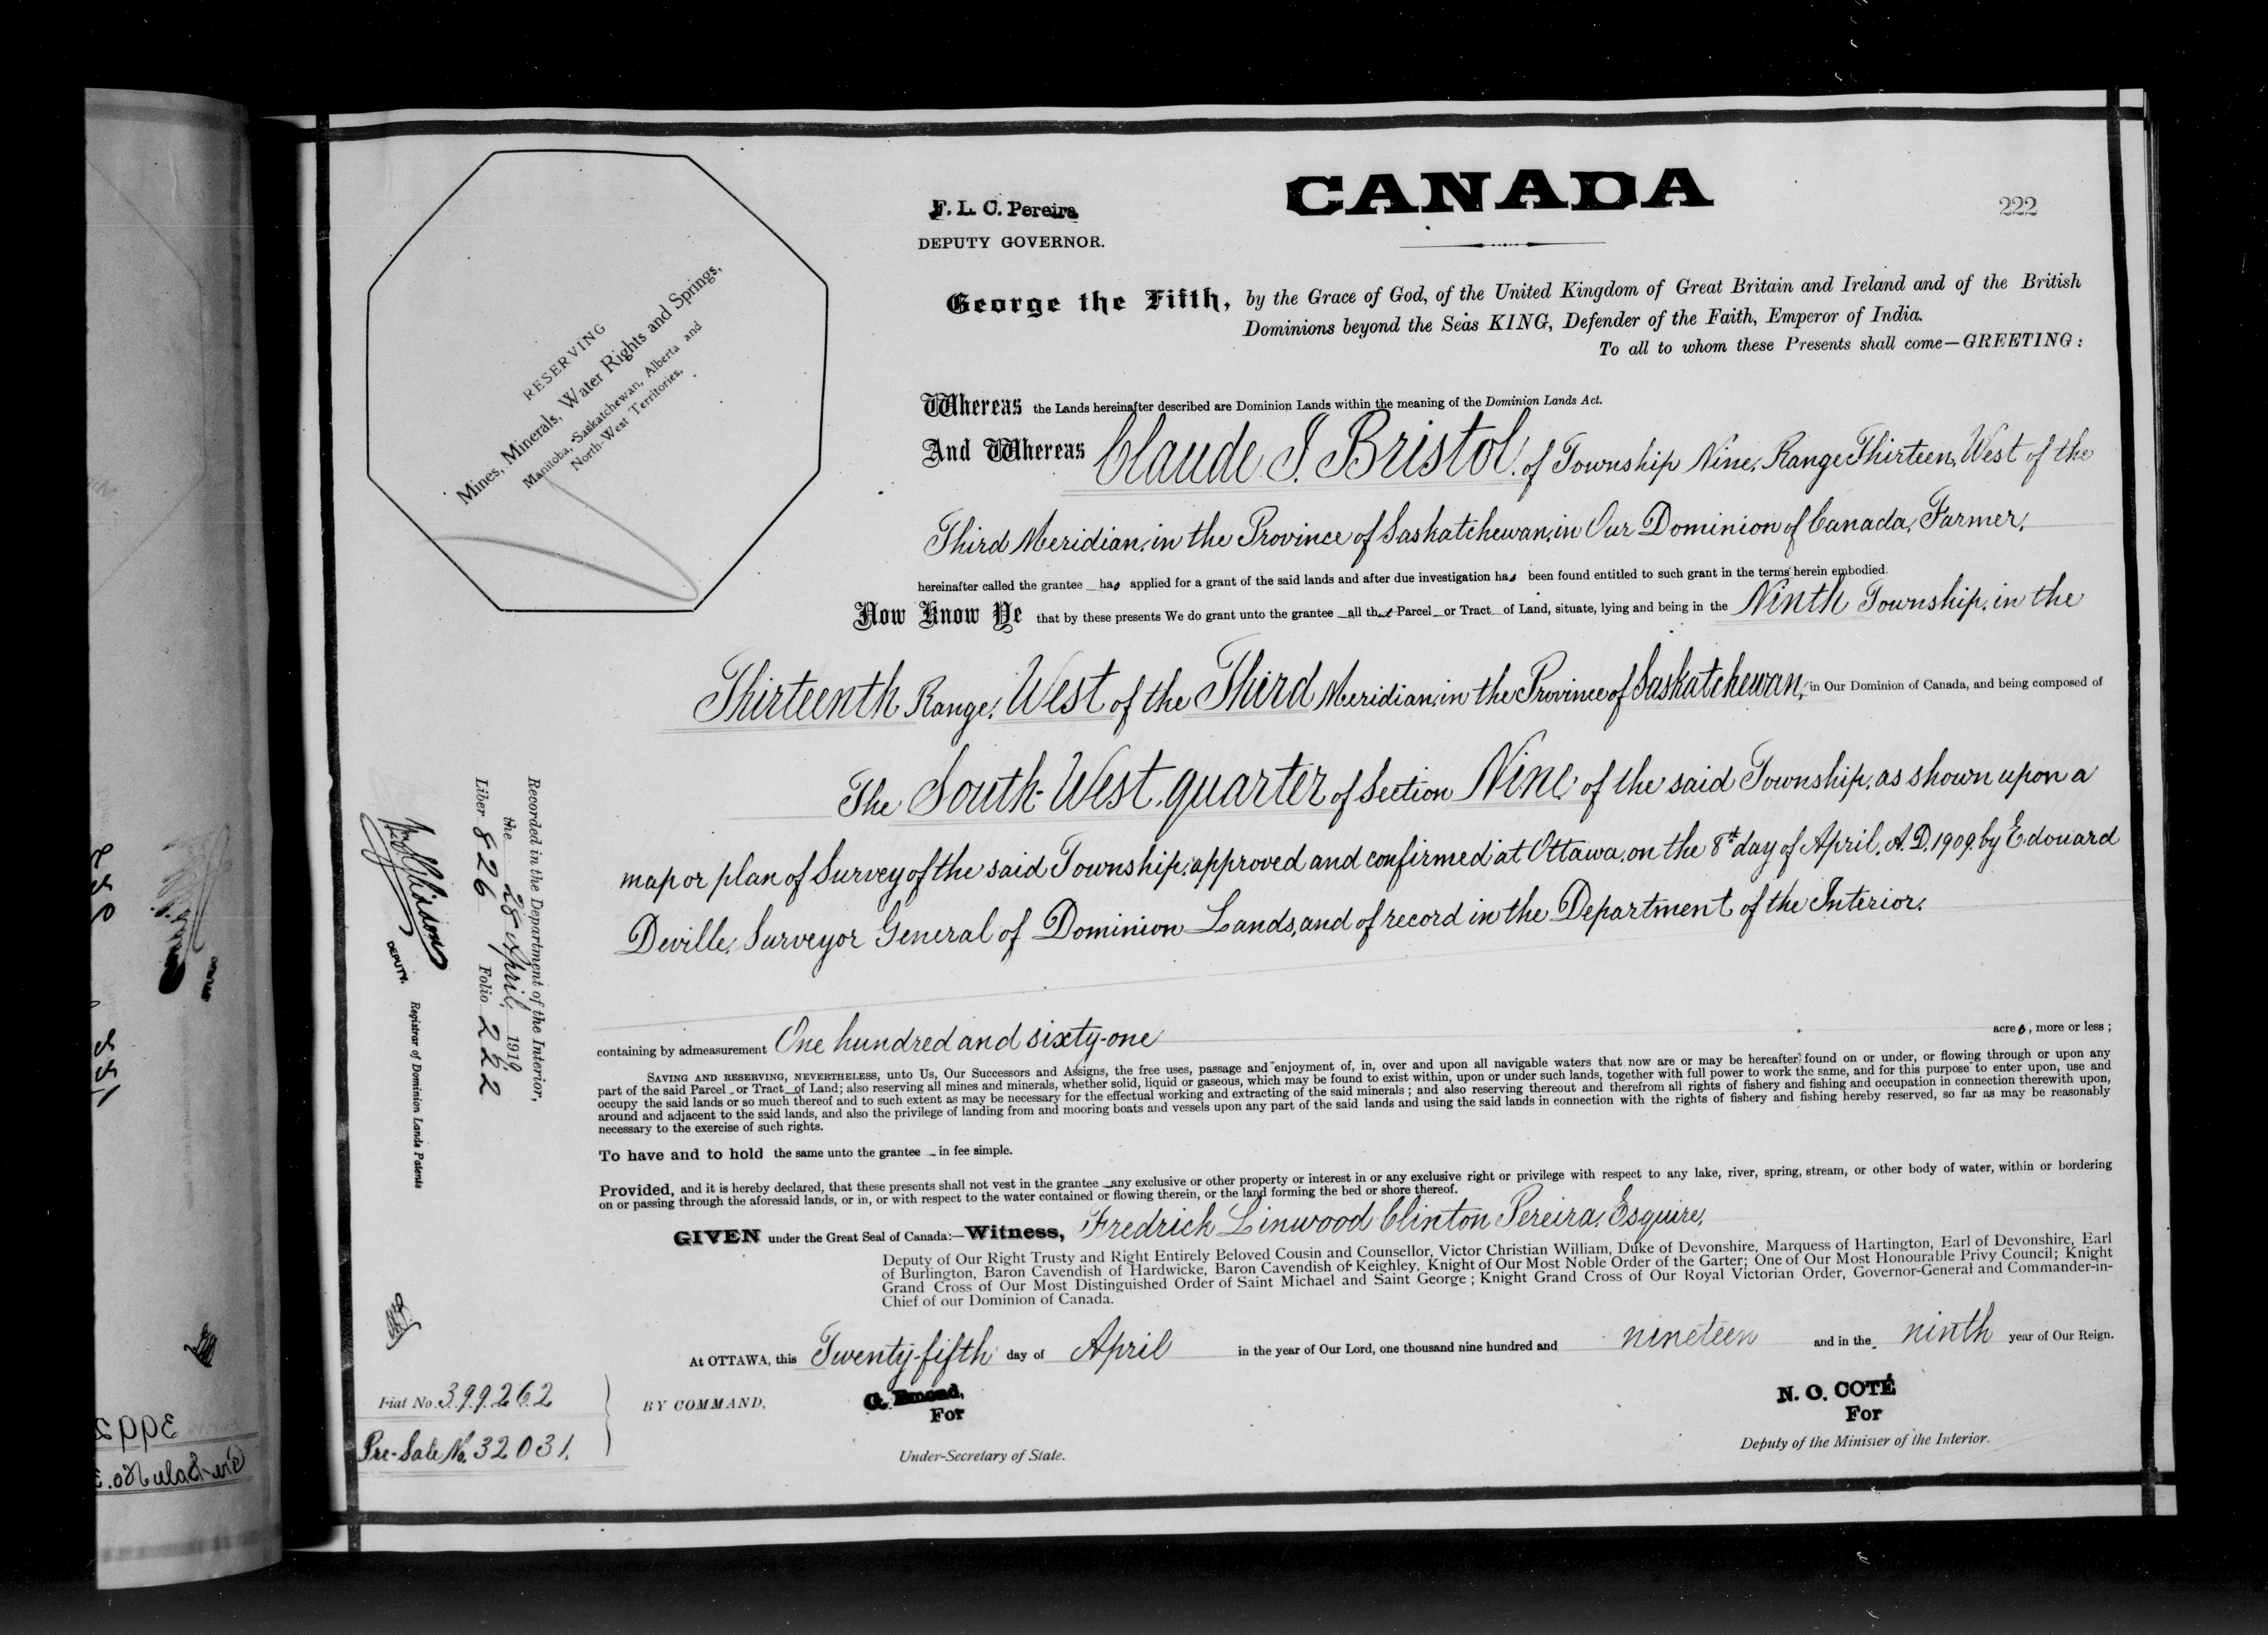 CANADA
222
F. L. C. Pereira
DEPUTY GOVERNOR.
RESERVING
Mines, Minerals, Water Rights and Springs,
Manitoba, Saskatchewan, Alberta and
North-West Territories.
George the Fifth, by the Grace of God, of the United Kingdom of Great Britain and Ireland and of the British
Dominions beyond the Seas KING, Defender of the Faith, Emperor of India.
To all to whom these Presents shall come—GREETING:
Whereas the Lands hereinafter described are Dominion Lands within the meaning of the Dominion Lands Act.
And Whereas Claude I. Bristol, of Township Nine, Range Thirteen, West of the
Third Meridian, in the Province of Saskatchewan, in Our Dominion of Canada, Farmer,
hereinafter called the grantee has applied for a grant of the said lands and after due investigation has been found entitled to such grant in the terms herein embodied.
Now Know Ye that by these presents We do grant unto the grantee all that Parcel or Tract of Land, situate, lying and being in the Ninth Township, in the
Thirteenth Range, West of the Third Meridian, in the Province of Saskatchewan, in Our Dominion of Canada, and being composed of
The South-West quarter of Section Nine of the said Township, as shown upon a
map or plan of Survey of the said Township, approved and confirmed at Ottawa, on the 8th day of April, A.D. 1909, by Edouard
Deville, Surveyor General of Dominion Lands, and of record in the Department of the Interior.
containing by admeasurement One hundred and sixty-one acres, more or less;
SAVING AND RESERVING, NEVERTHELESS, unto Us, Our Successors and Assigns, the free uses, passage and enjoyment of, in, over and upon all navigable waters that now are or may be hereafter found on or under, or flowing through or upon any
part of the said Parcel or Tract of Land; also reserving all mines and minerals, whether solid, liquid or gaseous, which may be found to exist within, upon or under such lands, together with full power to work the same, and for this purpose to enter upon, use and
occupy the said lands or so much thereof and to such extent as may be necessary for the effectual working and extracting of the said minerals; and also reserving thereout and therefrom all rights of fishery and fishing and occupation in connection therewith upon,
around and adjacent to the said lands, and also the privilege of landing from and mooring boats and vessels upon any part of the said lands and using the said lands in connection with the rights of fishery and fishing hereby reserved, so far as may be reasonably
necessary to the exercise of such rights.
To have and to hold the same unto the grantee in fee simple.
Provided, and it is hereby declared, that these presents shall not vest in the grantee any exclusive or other property or interest in or any exclusive right or privilege with respect to any lake, river, spring, stream, or other body of water, within or bordering
on or passing through the aforesaid lands, or in, or with respect to the water contained or flowing therein, or the land forming the bed or shore thereof.
GIVEN under the Great Seal of Canada:—Witness, Fredrick Linwood Clinton Pereira, Esquire,
Deputy of Our Right Trusty and Right Entirely Beloved Cousin and Counsellor, Victor Christian William, Duke of Devonshire, Marquess of Hartington, Earl of Devonshire, Earl
of Burlington, Baron Cavendish of Hardwicke, Baron Cavendish of Keighley, Knight of Our Most Noble Order of the Garter; One of Our Most Honourable Privy Council; Knight
Grand Cross of Our Most Distinguished Order of Saint Michael and Saint George; Knight Grand Cross of Our Royal Victorian Order, Governor-General and Commander-in-
Chief of our Dominion of Canada.
At OTTAWA, this Twenty-fifth day of April in the year of Our Lord, one thousand nine hundred and nineteen and in the ninth year of Our Reign.
BY COMMAND,
G. Emond,
For
Under-Secretary of State.
N. O. COTÉ
For
Deputy of the Minister of the Interior.
Recorded in the Department of the Interior,
the 28 April, 1919
Liber 826 Folio 222
DEPUTY. Registrar of Dominion Lands Patents
Fiat No. 399262
Pre-Sale No. 32031.